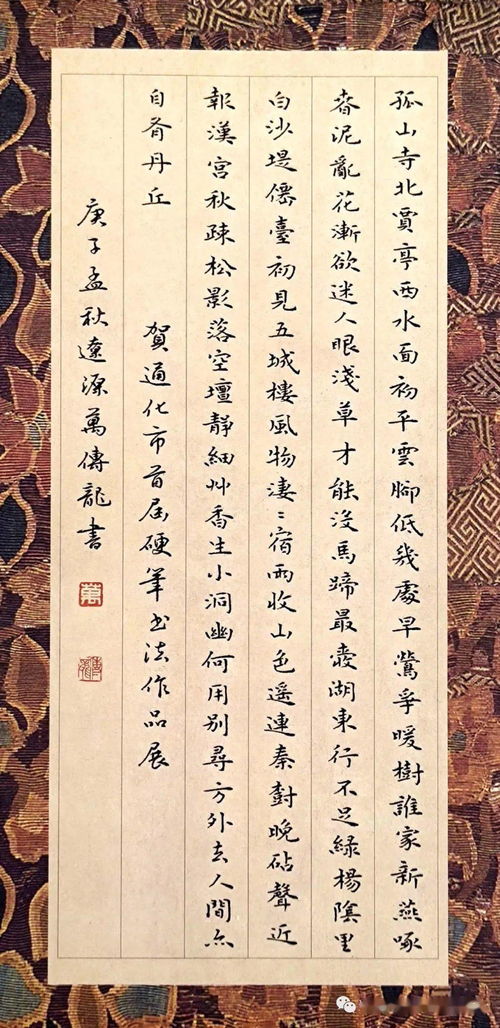 孤山寺北賈亭西水面初平雲腳低幾處早鶯爭暖樹誰家新燕啄
春泥亂花漸欲迷人眼淺草才能没馬蹄最愛湖東行不足綠楊陰里
白沙堤僊臺初見五城樓風物凄〻宿雨收山色遥連秦樹晚砧聲近
報漢宮秋疎松影落空壇靜細艸香生小洞幽何用别尋方外去人間亦
自有丹丘 賀通化市首届硬筆書法作品展
庚子孟秋遼源萬傳龍書
萬